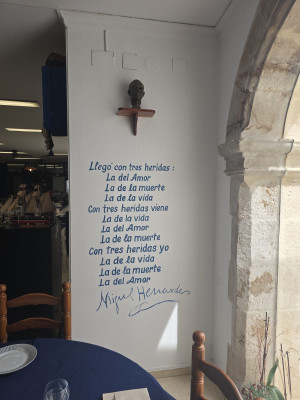 Llegó con tres heridas:
La del Amor
La de la muerte
La de la vida
Con tres heridas viene
La de la vida
La del Amor
La de la muerte
Con tres heridas yo
La de la vida
La de la muerte
La del Amor
Miguel Hernandez